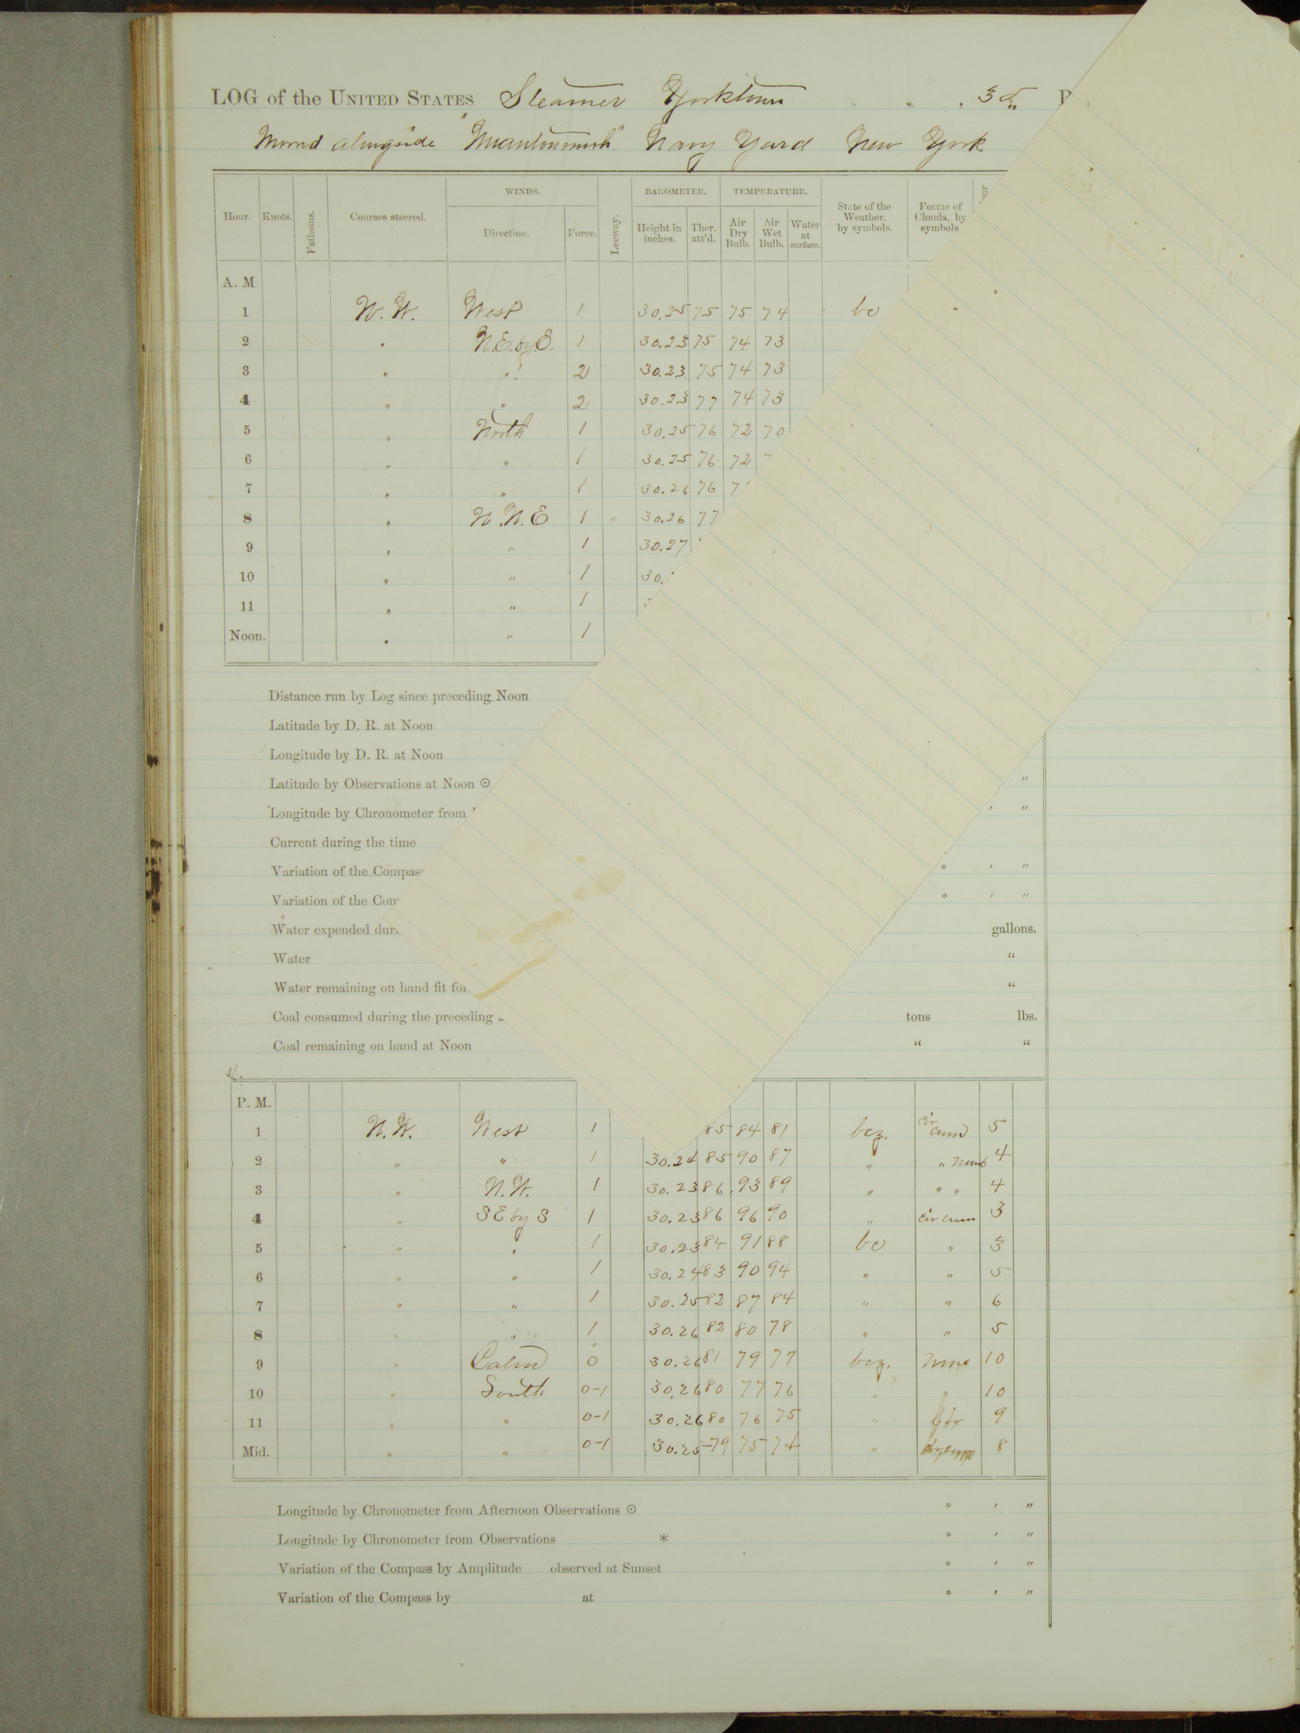 LOG of the UNITED STATES Steamer Yorktown, 3d
Moored alongside "Miantonomoh" Navy Yard New York
WINDS. BAROMETER. TEMPERATURE.
Hour. Knots. Fathoms. Courses steered. Direction. Force. Leeway. Height in inches. Ther. att'd. Air Dry Bulb. Air Wet Bulb. Water at surface. State of the Weather. by symbols. Forms of Clouds, by symbols
A. M.
1 N.W. West 1 30.25 75 75 74 bc
2 " N.E. by E. 1 30.23 75 74 73
3 " " 2 30.23 75 74 73
4 " " 2 30.23 77 74 73
5 " North 1 30.25 76 72 70
6 " " 1 30.25 76 72
7 " " 1 30.26 76
8 " N.N.E 1 30.26 77
9 " " 1 30.27
10 " " 1 30.
11 " " 1
Noon. " " 1
Distance run by Log since preceding Noon
Latitude by D. R. at Noon
Longitude by D. R. at Noon
Latitude by Observations at Noon ⊙ "
Longitude by Chronometer from ' "
Current during the time
Variation of the Compass ° ' "
Variation of the ° ' "
Water expended gallons.
Water "
Water remaining on hand fit for "
Coal consumed during the preceding tons lbs.
Coal remaining on hand at Noon " "
P. M.
1 N.W. West 1 85 84 81 bcz. cir cum 5
2 " " 1 30.24 85 90 87 " " nimb 4
3 " N.W. 1 30.23 86 93 89 " " " 4
4 " SE by S 1 30.23 86 96 90 " cir cum 3
5 " " 1 30.23 84 91 88 bc " 3
6 " " 1 30.24 83 90 94 " " 5
7 " " 1 30.25 82 87 84 " " 6
8 " " 1 30.26 82 80 78 " " 5
9 " Calm 0 30.26 81 79 77 bcz. None 10
10 " South 0-1 30.26 80 77 76 " " 10
11 " " 0-1 30.26 80 76 75 " Cir 9
Mid. " " 0-1 30.25 79 75 74 " cir cum 8
Longitude by Chronometer from Afternoon Observations ⊙ ° ' "
Longitude by Chronometer from Observations * ° ' "
Variation of the Compass by Amplitude observed at Sunset ° ' "
Variation of the Compass by at ° ' "